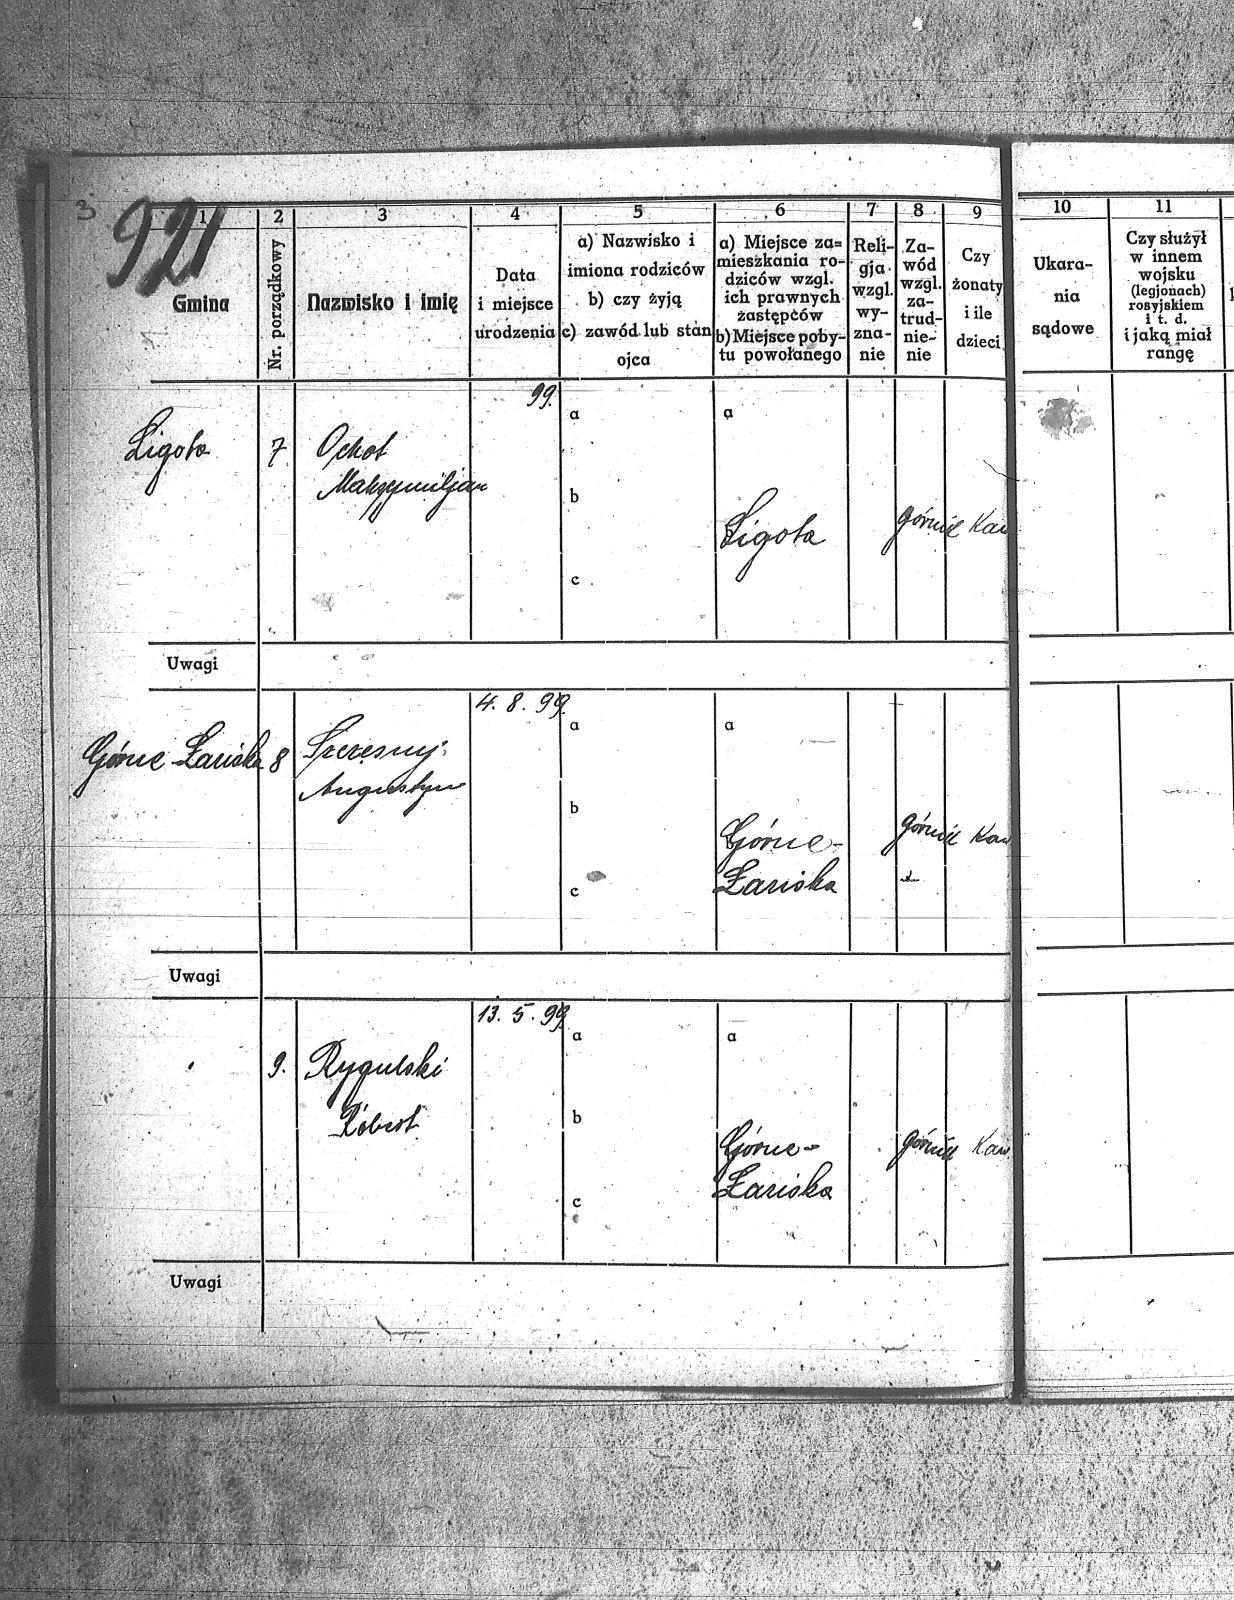 3
921
1 2 3 4 5 6 7 8 9 10 11
Gmina
Nr. porządkowy
Nazwisko i imię
Data
i miejsce
urodzenia
a) Nazwisko i
imiona rodziców
b) czy żyją
c) zawód lub stan
ojca
a) Miejsce za=
mieszkania ro-
dziców wzgl.
ich prawnych
zastępców
b) Miejsce poby-
tu powołanego
Reli-
gja
wzgl.
wy-
zna-
nie
Za-
wód
wzgl.
za-
trud-
nie-
nie
Czy
żonaty
i ile
dzieci
Ukara-
nia
sądowe
Czy służył
w innem
wojsku
(legjonach)
rosyjskiem
i t. d.
i jaką miał
rangę
99.
a a
Ligota 7 Ochot
Maksymiljan
b
Ligota górnik Kaw
c
Uwagi
4. 8. 99.
a a
Górne Łaziska 8 Szczęsny
Augustyn
b
Górne- górnik Kaw
Łaziska
c
Uwagi
13. 5. 99.
a a
9. Rygulski
Róbert
b
Górne- górnik Kaw
Łaziska
c
Uwagi